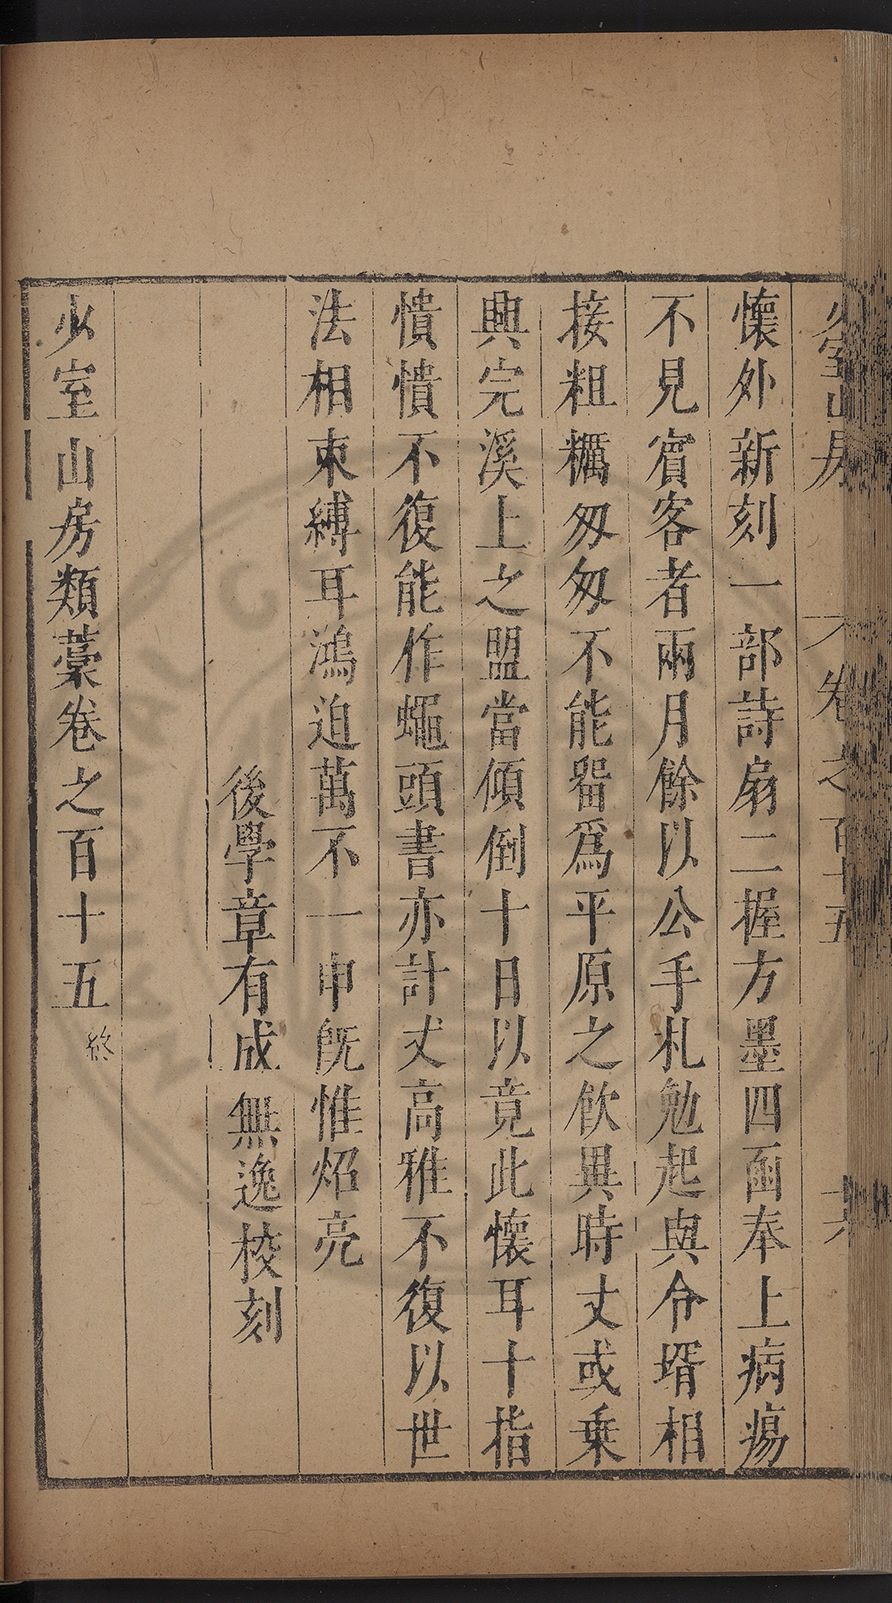 少室山房 卷之百十五 十六
懷外新刻一部詩扇二握方墨四面奉上病瘍
不見賓客者兩月餘以公手札勉起與令壻相
接粗糲匆匆不能留爲平原之飲異時丈或乗
興完溪上之盟當傾倒十日以竟此懷耳十指
憒憒不復能作蠅頭書亦計丈高雅不復以世
法相束縛耳鴻迫萬不一申旣惟炤亮
後學章有成無逸校刻
少室山房類藁卷之百十五終